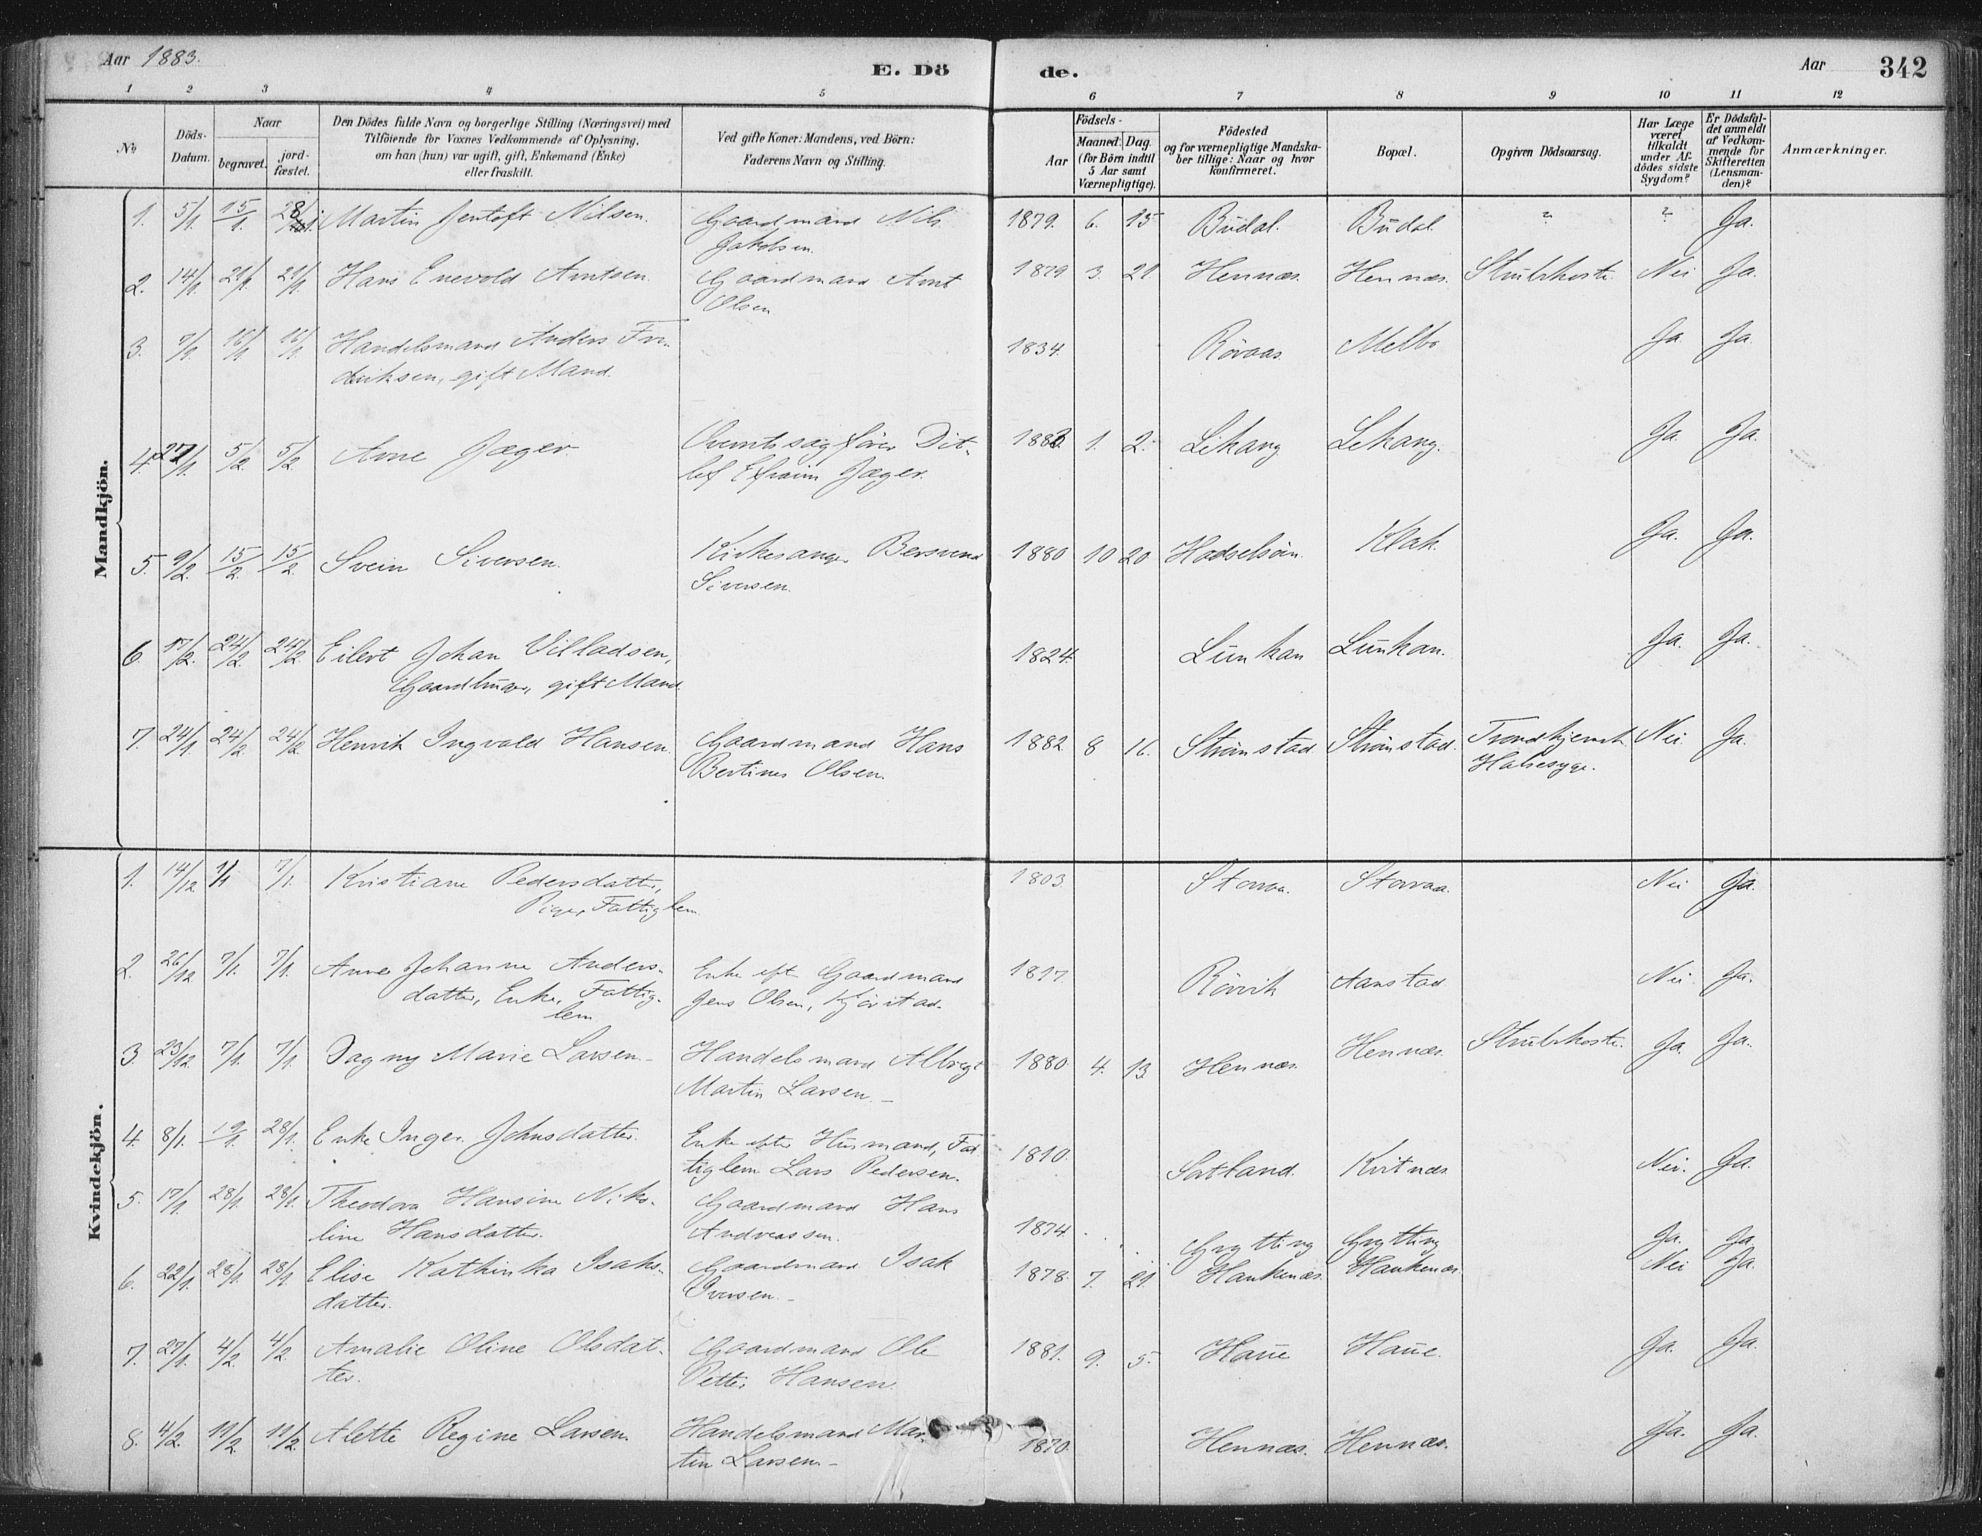 Aar 1883.
E. Dö
de.
Aar
342
1 2 3 4 5 6 7 8 9 10 11 12
No
Döds-Datum.
Naar
begravet.
jord-fæstet.
Den Dödes fulde Navn og borgerlige Stilling (Næringsvei) med
Tilföiende for Voxnes Vedkommende af Oplysning,
om han (hun) var ugift, gift, Enkemand (Enke)
eller fraskilt.
Ved gifte Koner: Mandens, ved Börn:
Faderens Navn og Stilling.
Födsels-
Aar
Maaned. Dag.
(for Börn indtil
5 Aar samt
Værnepligtige).
Födested
og for værnepligtige Mandska-
ber tillige: Naar og hvor
konfirmeret.
Bopæl.
Opgiven Dödsaarsag.
Har Læge
været
tilkaldt
under Af-
dödes sidste
Sygdom?
Er Dödsfal-
det anmeldt
af Vedkom-
mende for
Skifteretten
(Lensman-
den)?
Anmærkninger.
Mandkjön.
1. 5/1 15/1 28/1 Martin Jentoft Nilsen. Gaardmand Nils 1879. 6. 15 Budal. Budal " " Ja.
Jakobsen.
2. 14/1 21/1 21/1 Hans Enevold Arntsen. Gaardmand Arnt 1879 3. 21 Hennæs. Hennæs. Strubehoste Nei Ja.
Olsen
3. 7/1 16/1 16/1 Handelsmand Anders Fre- 1834. Röraas Melbo Ja. Ja.
driksen, gift Mand.
4. 27/1 5/2 5/2 Arne Jæger. Overretssagförer Dit- 1883 1. 2. Lekang Lekang. Ja. Ja.
lef Efraim Jæger.
5. 9/2 15/2 15/2 Svein Siversen. Kirkesanger Bersvend 1880 10 20 Hadselöen. Klak Ja. Ja.
Siversen.
6 17/2 24/2 24/2 Eilert Johan Villadsen, 1824. Lunkan Lunkan. Ja. Ja.
Gaardbruger, gift Mand.
7. 24/1 24/2 24/2 Henrik Ingvald Hansen. Gaardmand Hans 1882 8 16. Strönstad Strönstad. Trondhjemsk Nei. Ja.
Bertinus Olsen. Halsesyge.
Kvindekjön.
1. 14/12 7/1 7/1. Kristiane Pedersdatter, 1803. Storvaa. Storvaa. Nei Ja.
Pige, Fattiglem.
2. 26/12 7/1. 7/1. Anne Johanne Anders- Enke eft. Gaardmand 1817. Rörvik Aanstad Nei Ja.
datter, Enke, Fattig- Jens Olsen,
lem
3. 23/12 7/1. 7/1. Dagny Marie Larsen. Handelsmand Albrigt 1880. 4. 13. Hennæs. Hennæs. Strubehoste. Ja. Ja.
Martin Larsen.
4. 8/1. 19/1 28/1. Enke Inger Johnsdatter. Enke efter Husmand, Fat- 1810. Sortland. Kvitnæs Nei. Ja.
tiglem Lars Pedersen.
5. 17/1 28/1. 28/1. Theodora Hansine Niko- Gaardmand Hans 1874 Grytting Grytting Ja. Ja.
line Hansdatter. Andreassen.
6. 22/1. 28/1 28/1 Elise Kathinka Isaks- Gaardmand Isak 1878. 7. 21. Haukenæs. Haukenæs. Nei Ja.
datter. Iversen.
7. 27/1. 4/2. 4/2 Amalie Oline Olsdat- Gaardmand Ole 1881. 9. 5. Haue Haue. Ja. Ja.
ter. Petter Hansen.
8. 4/2. 11/2 11/2. Alette Regine Larsen. Handelsmand Mar- 1870. Hennæs. Hennæs. Ja. Ja.
tin Larsen.